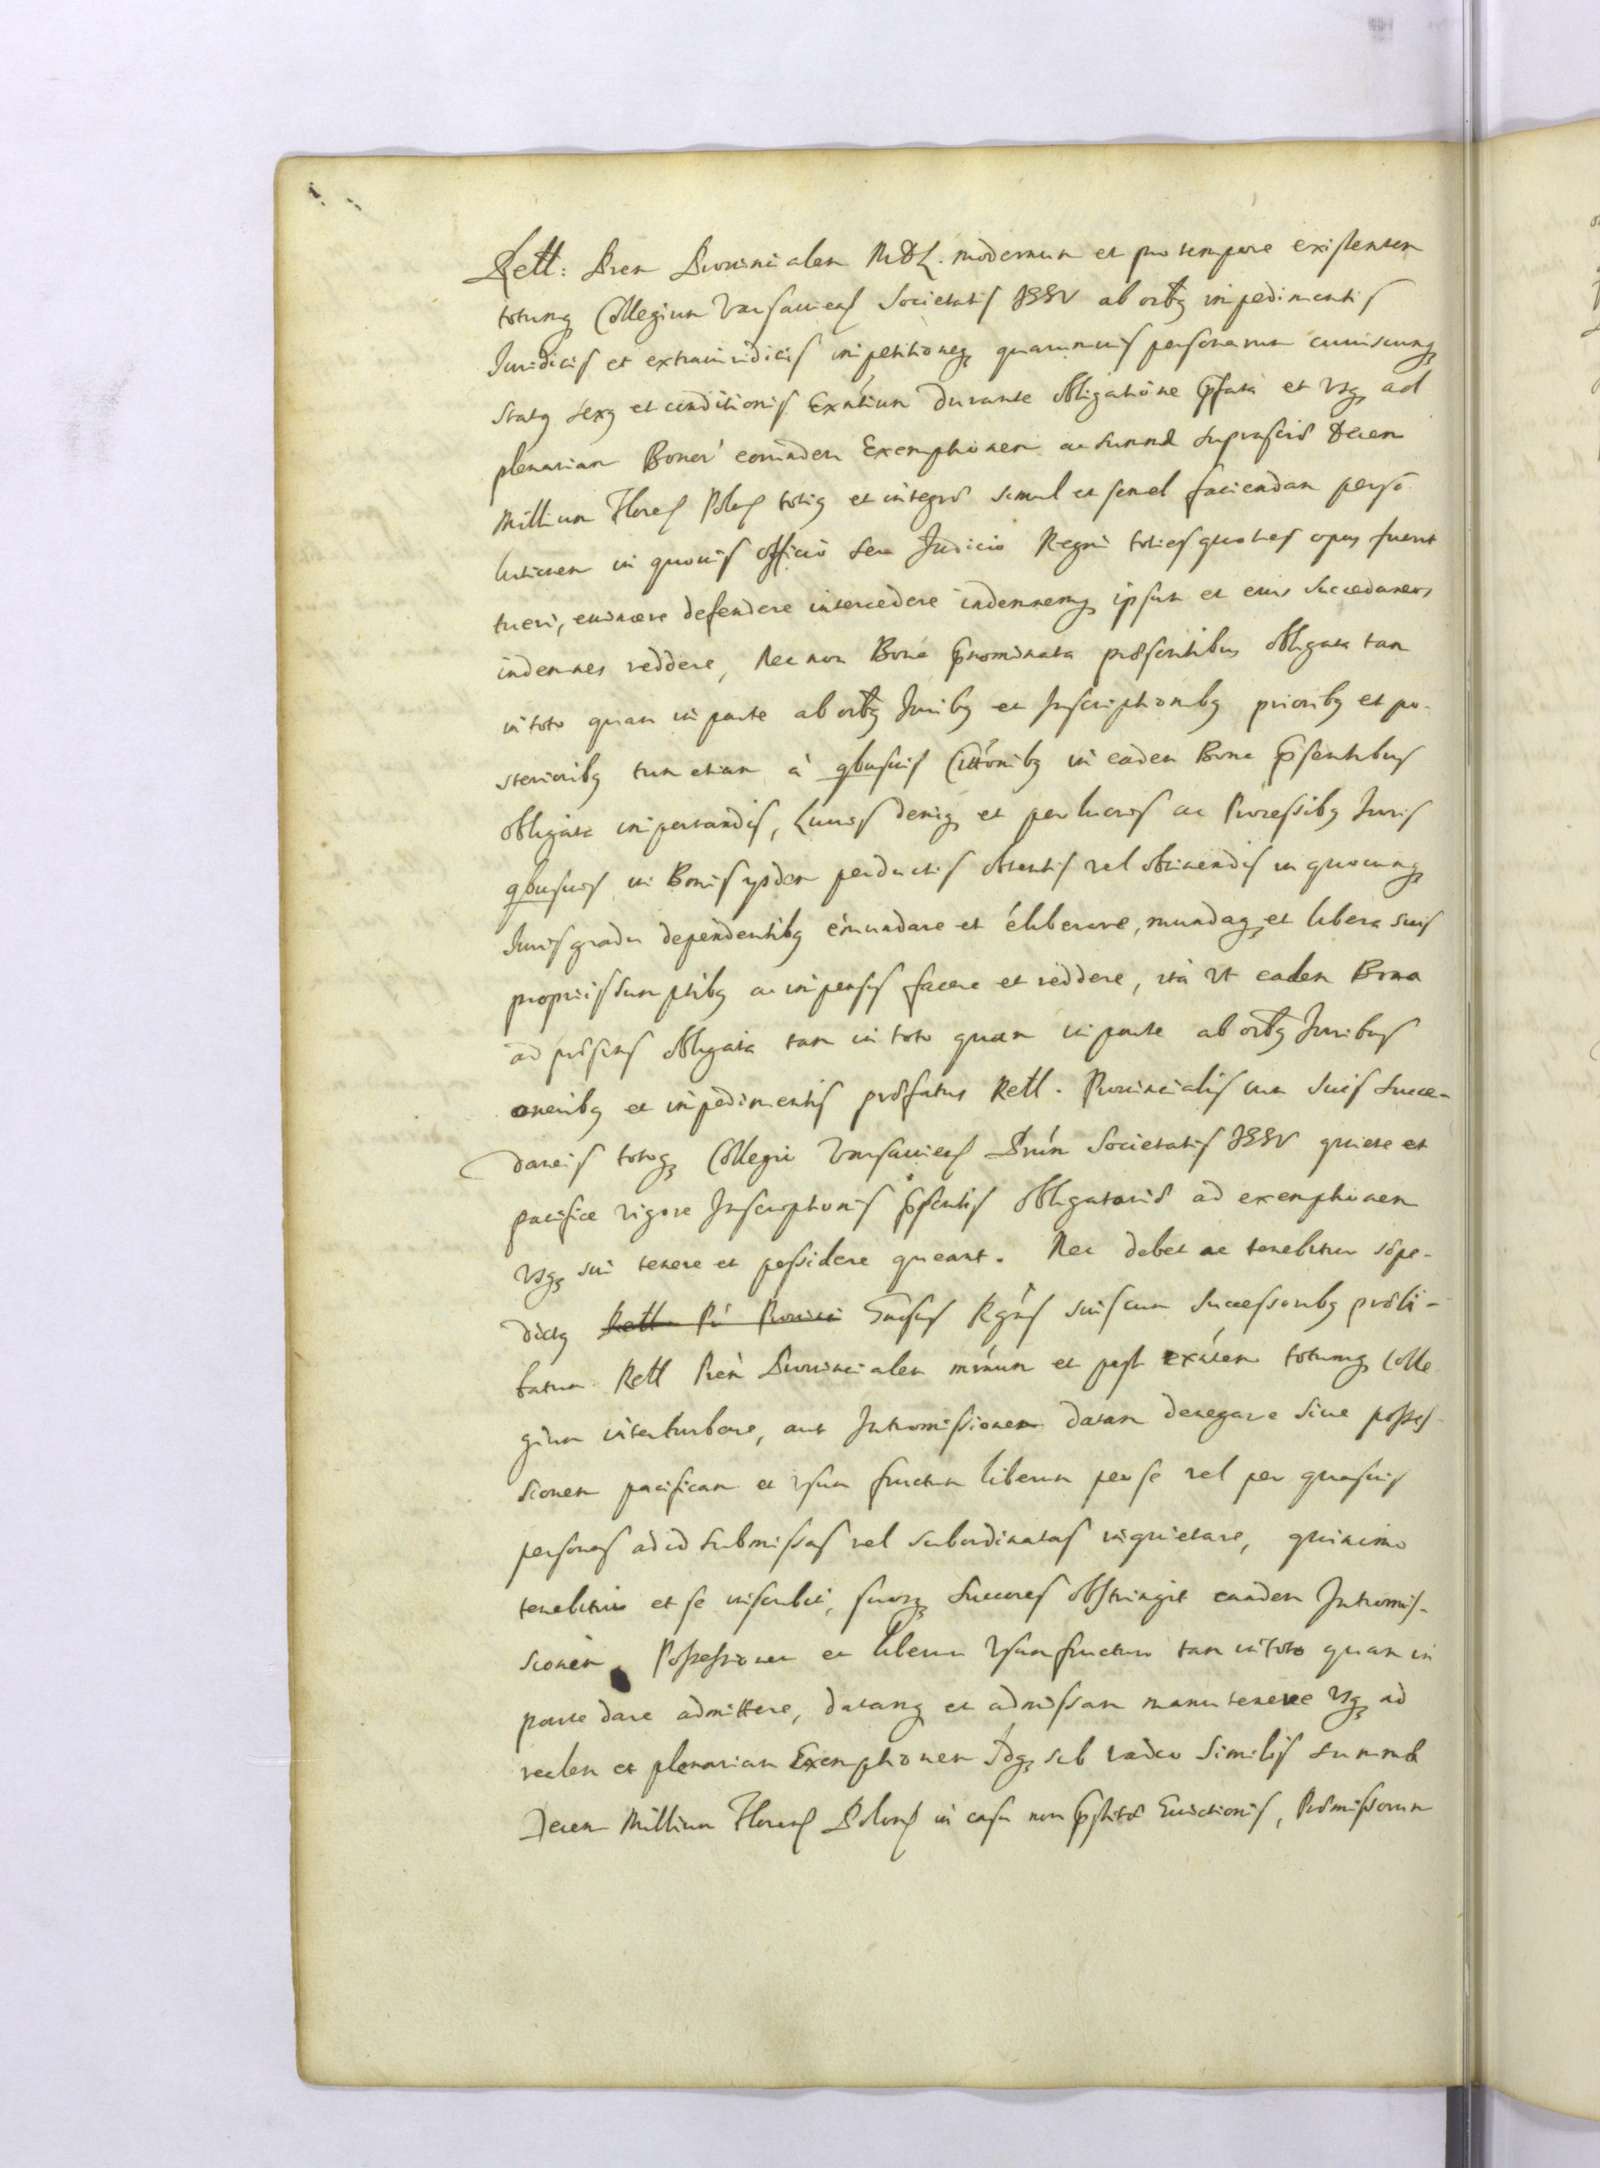 Rett: Prem Provincialem MDL. modernum et pro tempore existentem
totumq Collegium Varsavien Societatis JESV ab oibq impedimentis
Juridicis et extrajuridicis impetitioneq quarumvis personarum cuiuscunq
Statq sexq et conditionis Exntium durante obligatione pfata et Vsq ad
plenariam Bonor eorundem Exemptionem ac summæ suprascræ Decem
Millium Floren Polon totiq et integræ simul et semel faciendam perso
lutionem in quovis officio seu Judicio Regni toties quoties opus fuerit
tueri, evincere defendere intercedere indemnemq ipsum et eius succedaneos
indemnes reddere, Nec non Bona pnominata præsentibus obligata tam
in toto quam in parte ab oibq Juribq et Inscriptionibq prioribq et po-
sterioribq tum etiam à qbusvis Cittonibq in eadem Bona psentibus
obligata impertandis, Lucris deniq et perlucris ac Processibq Juris
qbusvis in Bonis ysdem perductis obtentis vel obtinendis in quocunq
Juris gradu dependentibq emundare et eliberare, mundaq et libera suis
propriis sumptibq ac impensis facere et reddere, ita Vt eadem Bona
ad præsens obligata tam in toto quam in parte ab oibq Juribus
oneribq et impedimentis præfatus Rett. Provincialis cum suis succe-
daneis totoq Collegio Varsavien Prum Societatis JESV quiete et
pacifice vigore Inscriptionis psentis obligatoriæ ad exemptionem
Vsq sui tenere et possidere queant. Nec debet ac tenebitur sæpe-
dictq Rett Pr Provinci Gnsus Rgns suis cum Successoribq præli-
batum Rett Prem Provincialem mnum et post exntem totumq Colle
gium interturbare, aut Intromissionem datam denegare sive posses-
sionem pacificam et vsum fructum liberum per se vel per quasvis
personas ad id submissas vel subordinatas inquietare, quinimo
tenebitur et se inscribit, suosq Succores obstringit eandem Intromis-
sionem Possessionem et liberum Vsumfructum tam in toto quam in
parte dare admittere, datamq et admissam manutenere Vsq ad
realem et plenariam Exemptionem Idq sub vadio similis summæ
Decem Millium Floren Polon in casu non pstitæ Evictionis, Præmissorum